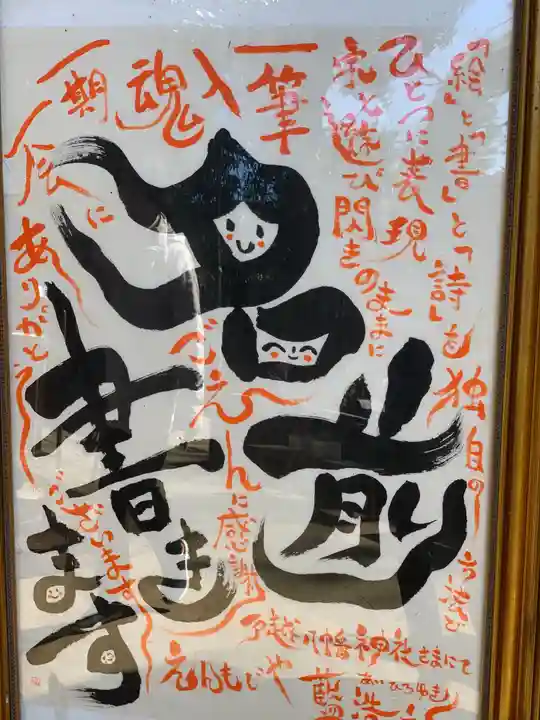 「絵」と「書」と「詩」を独自の
ひとつに表現
字と遊び閃きのままに
一筆入魂
一期一
にありがとう
ございます
名前
書きます
ごえんに感謝
戸越八幡神社さまにて
えんもじや
あいひろゆき
藍